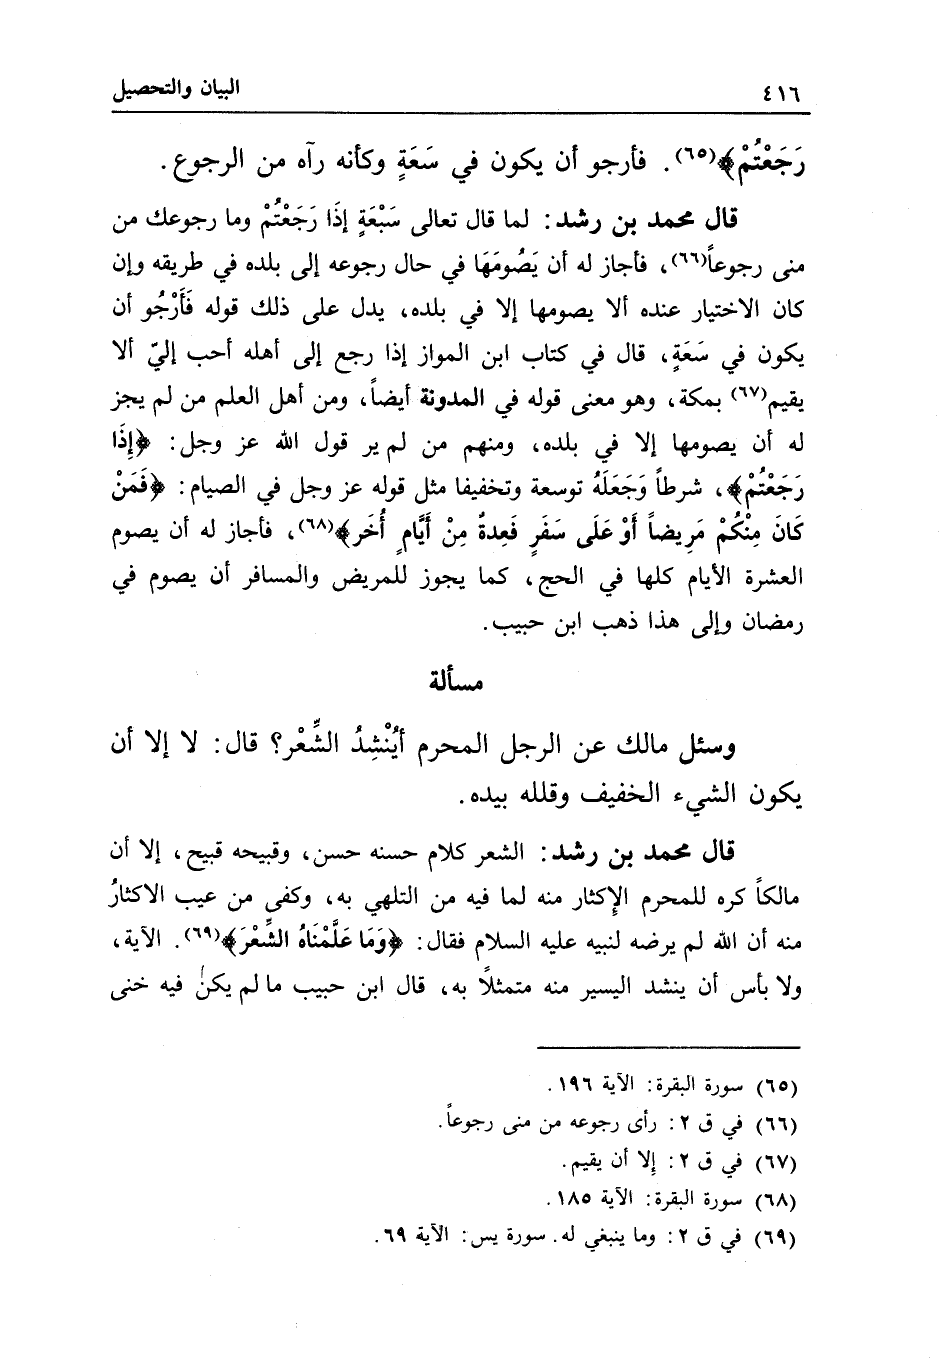 ٤١٦ البيان والتحصيل
رَجَعْتُمْ﴾(٦٥). فأرجو أن يكون في سَعَةٍ وكأنه رآه من الرجوع.
قال محمد بن رشد: لما قال تعالى سَبْعَةٍ إذَا رَجَعْتُمْ وما رجوعك من
منى رجوعاً(٦٦)، فأجاز له أن يَصُومَهَا في حال رجوعه إلى بلده في طريقه وإن
كان الاختيار عنده ألا يصومها إلا في بلده، يدل على ذلك قوله فَأَرْجُو أن
يكون في سَعَةٍ، قال في كتاب ابن المواز إذا رجع إلى أهله أحب إليّ ألا
يقيم(٦٧) بمكة، وهو معنى قوله في المدونة أيضاً، ومن أهل العلم من لم يجز
له أن يصومها إلا في بلده، ومنهم من لم ير قول الله عز وجل: ﴿إِذَا
رَجَعْتُمْ﴾، شرطاً وَجَعَلَهُ توسعة وتخفيفا مثل قوله عز وجل في الصيام: ﴿فَمَنْ
كَانَ مِنْكُمْ مَرِيضاً أَوْ عَلَى سَفَرٍ فَعِدةٌ مِنْ أَيَّامٍ أُخَر﴾(٦٨)، فأجاز له أن يصوم
العشرة الأيام كلها في الحج، كما يجوز للمريض والمسافر أن يصوم في
رمضان وإلى هذا ذهب ابن حبيب.
مسألة
وسئل مالك عن الرجل المحرم أيُنْشِدُ الشِّعْر؟ قال: لا إلا أن
يكون الشيء الخفيف وقلله بيده.
قال محمد بن رشد: الشعر كلام حسنه حسن، وقبيحه قبيح، إلا أن
مالكاً كره للمحرم الإكثار منه لما فيه من التلهي به، وكفى من عيب الاكثارُ
منه أن الله لم يرضه لنبيه عليه السلام فقال: ﴿وَمَا عَلَّمْنَاهُ الشِّعْرَ﴾(٦٩). الآية،
ولا بأس أن ينشد اليسير منه متمثلاً به، قال ابن حبيب ما لم يكن فيه خنى
(٦٥) سورة البقرة: الآية ١٩٦.
(٦٦) في ق ٢: رأى رجوعه من منى رجوعاً.
(٦٧) في ق ٢: إلا أن يقيم.
(٦٨) سورة البقرة: الآية ١٨٥.
(٦٩) في ق ٢: وما ينبغي له. سورة يس: الآية ٦٩.